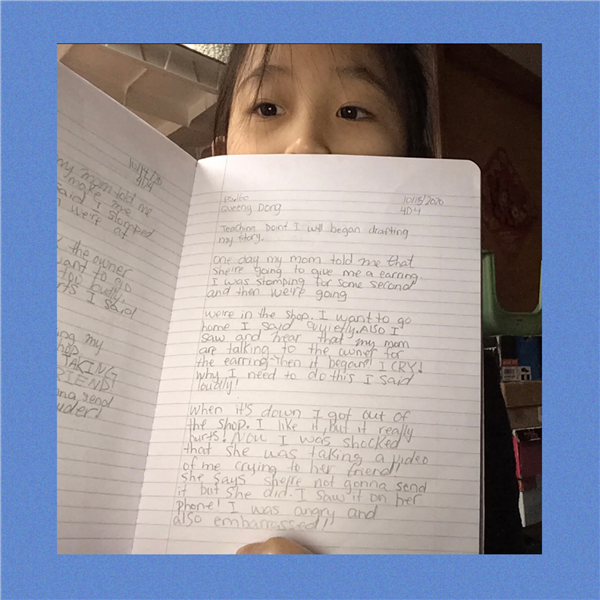 4D4
my mom told me
make me
and I stomped
we're at
the owner
want to go
loudly.
I said
my
TAKING
send
10/15/2020
Dong 4D4
Teaching Point I will began drafting
my story.
One day my mom told me that
she're going to give me a earring.
I was stomping for some second
and then we're going
we're in the shop. I want to go
home I said quietly. Also I
saw and hear that my mom
are talking to the owner for
the earring. Then it began! I CRY!
why I need to do this I said
loudly!
When its down I got out of
the shop. I like it, but it really
hurts! Now I was shocked
that she was taking a video
of me crying to her friend!
She says she're not gonna send
it but she did. I saw it on her
phone! I was angry and
also embarrassed!